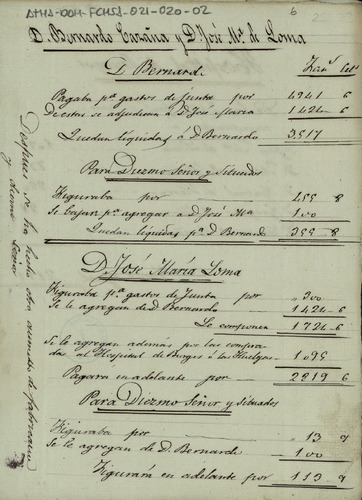 AMHS-004-FCMSS-021-020-02
6
2
D. Bernardo Caraña y D. José Mª. de Loma
D. Bernard. Zanˢ Celˢ
Pagaba pª gastos de Junta por 4941 6
De estos se adjudican a D. José Maria 1424 6
Quedan líquidas á D. Bernardo 3517
Para Diezmo Señor y Situados
Figuraba por 455 8
Se bajan pª agregar a D. José Mª 100
Quedan líquidas pª D. Bernardo 355 8
D. José María Loma
Figuraba pª gastos de Junta por 300
Se le agregan de D. Bernardo 1424 6
Le componen 1724 6
Se le agregan además por las compra-
das al Hospital de Burgos i las Huelgas 1095
Pagará en adelante por 2819 6
Para Diezmo Señor y Situados
Figuraba por 13 9
Se le agregan de D. Bernardo 100
Figurará en adelante por 113 9
Despues se ha hecho otro aumento de fabricacion
y diezmo Señor